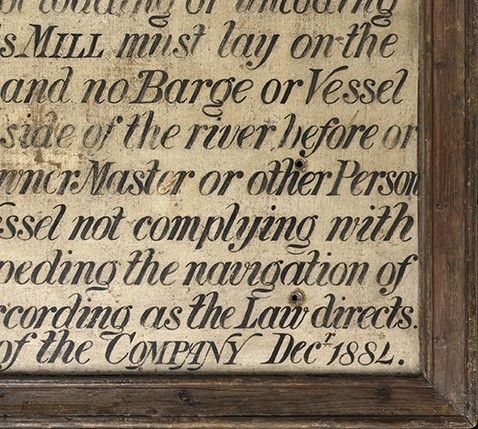 s MILL must lay on the
and no Barge or Vessel
side of the river before or
wner Master or other Person
ssel not complying with
peding the navigation of
ccording as the Law directs.
of the COMPANY Decr. 1884.